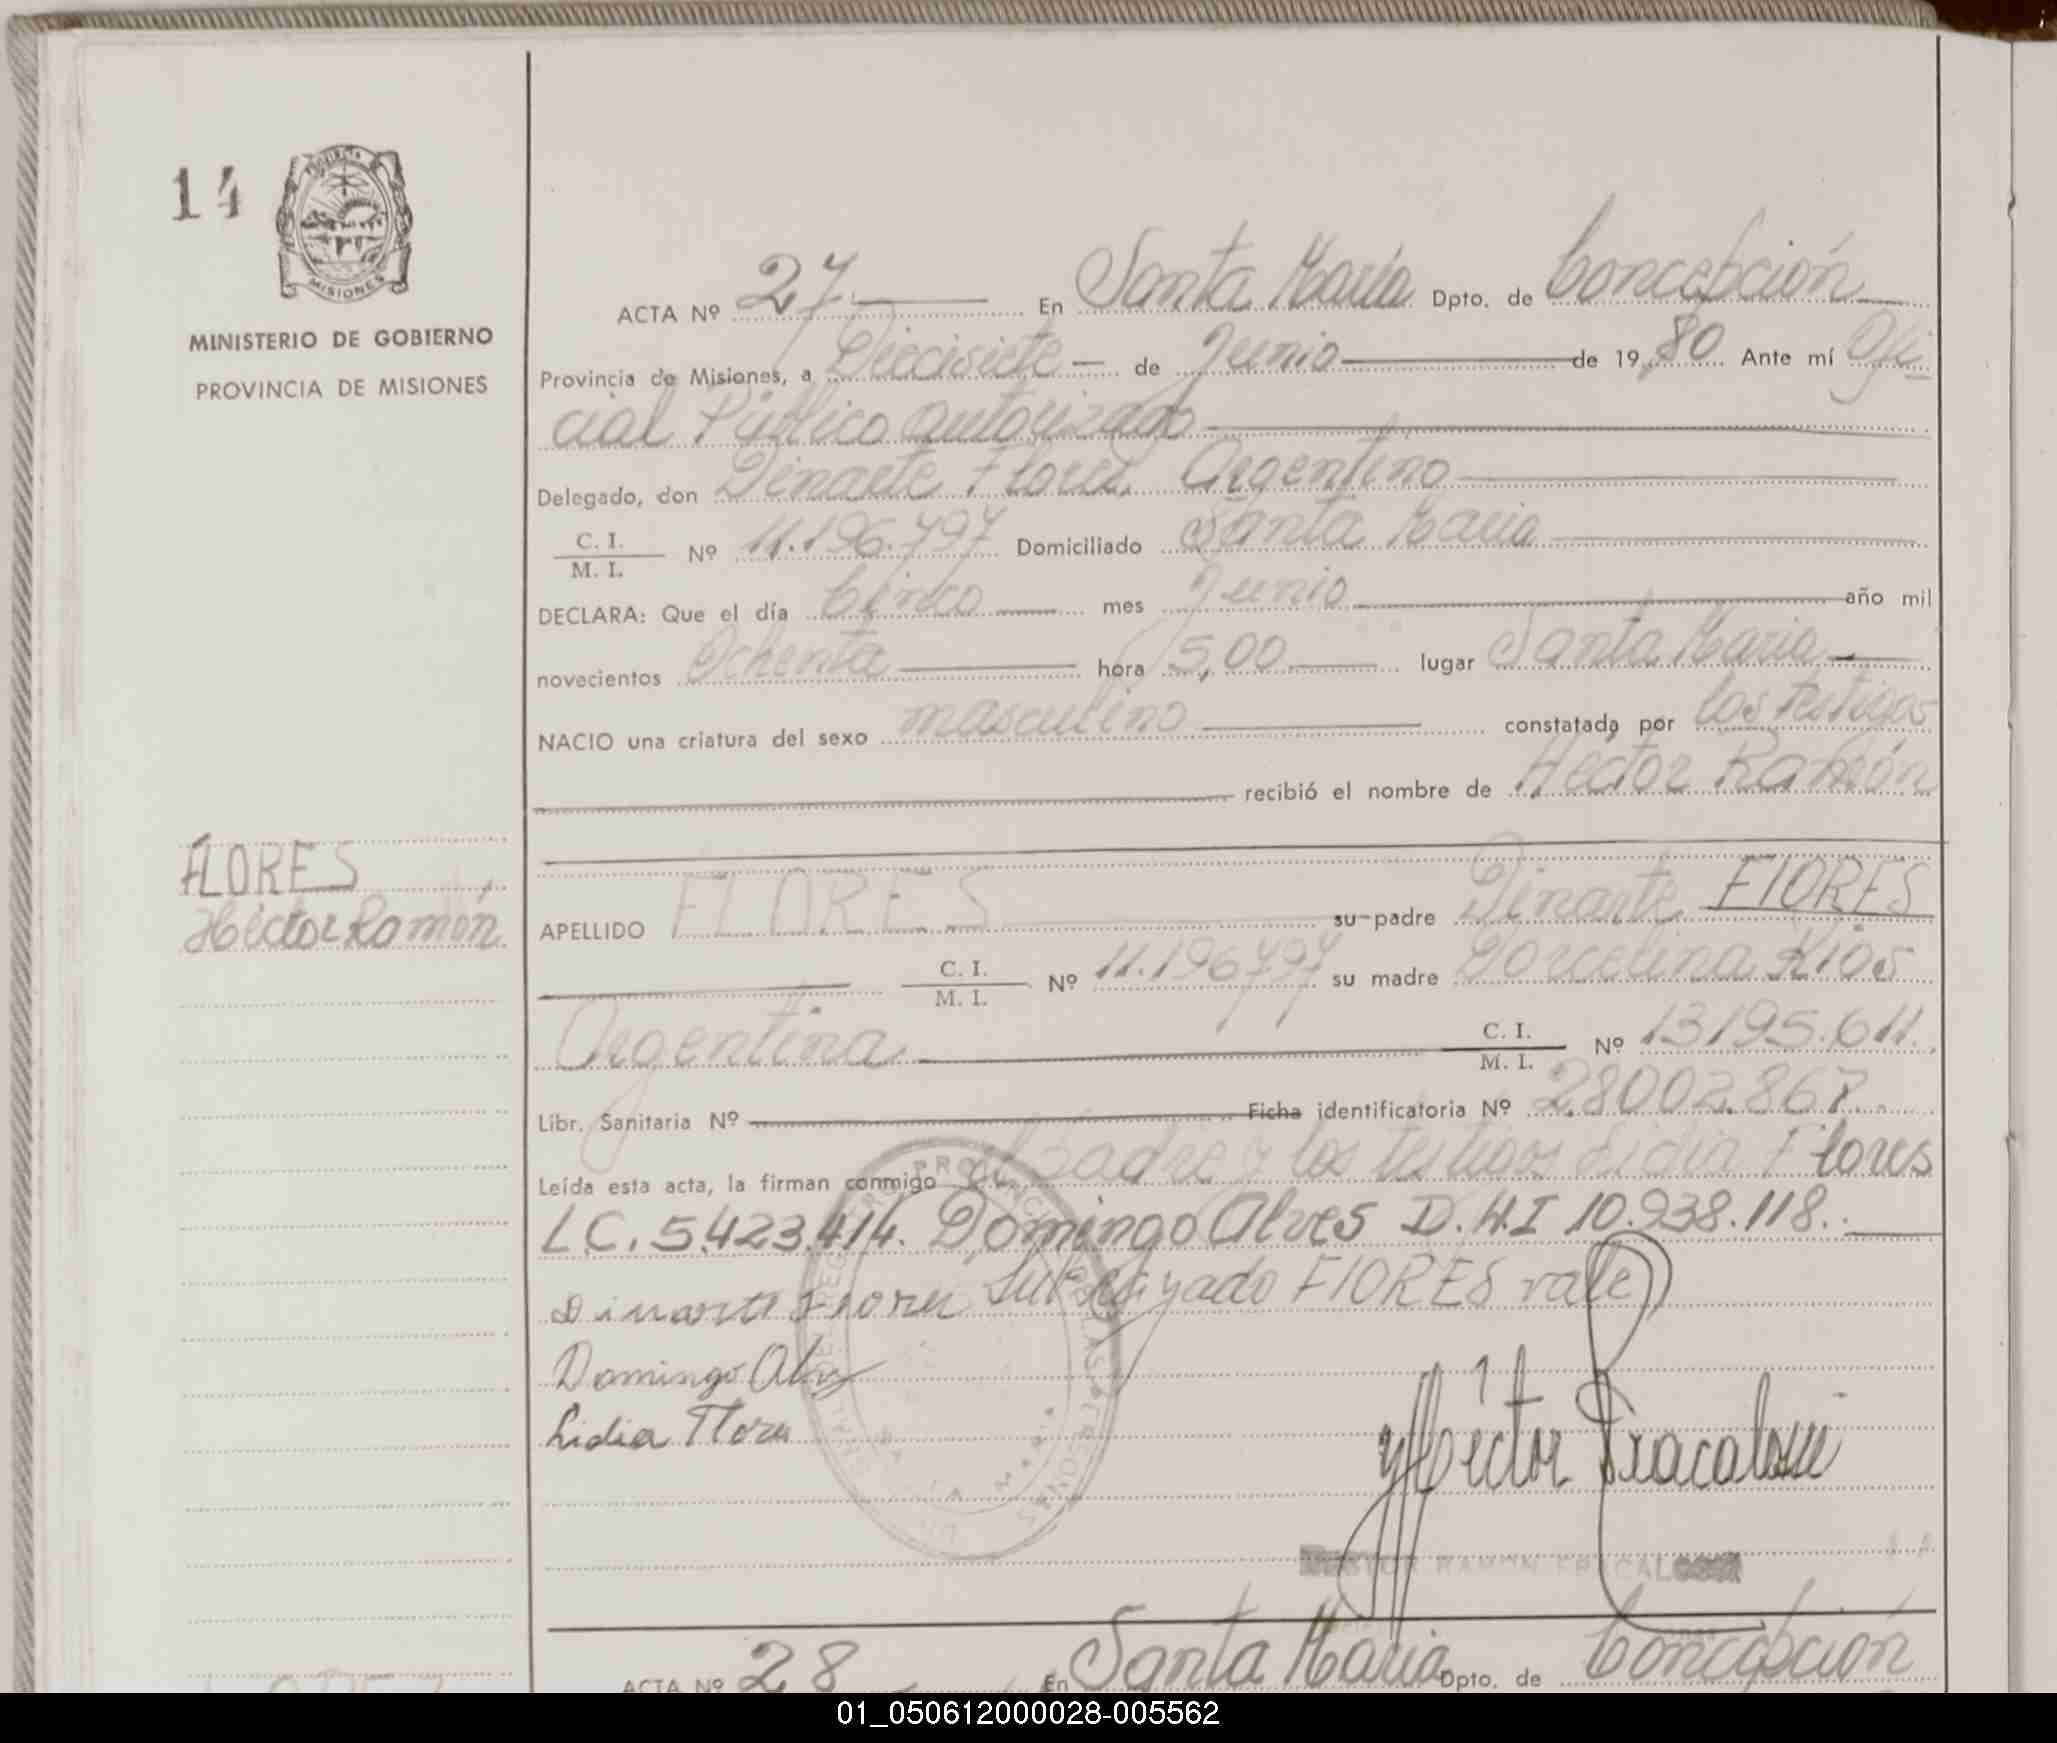 14
PROVINCIA
MISIONES
MINISTERIO DE GOBIERNO
PROVINCIA DE MISIONES
FLORES
Héctor Ramón
ACTA Nº 27 En Santa María Dpto. de Concepción
Provincia de Misiones, a Diecisiete de Junio de 19 80 Ante mí Ofi-
cial Público autorizado
Delegado, don Dinarte Flores, Argentino
C. I.
M. I. Nº 11.196.797 Domiciliado Santa Maria
DECLARA: Que el día Cinco mes Junio año mil
novecientos Ochenta hora 5,00 lugar Santa Maria
NACIO una criatura del sexo masculino constatada por los testigos
recibió el nombre de Héctor Ramón
APELLIDO FLORES su padre Dinarte FLORES
C. I.
M. I. Nº 11.196797 su madre Dorcelina Rios
Argentina C. I.
M. I. Nº 13195.611.
Libr. Sanitaria Nº Ficha identificatoria Nº 28002.867.
Leída esta acta, la firman conmigo el padre y los testigos Lidia Flores
L.C. 5.423.414. Domingo Alves D.N.I 10.938.118.
Dinarte Flores Subrayado FLORES vale
Domingo Alves
Lidia Flores
Héctor Fracalossi
RAMON FRACALOSSI
ACTA Nº 28 En Santa Maria Dpto. de Concepción
01_050612000028-005562